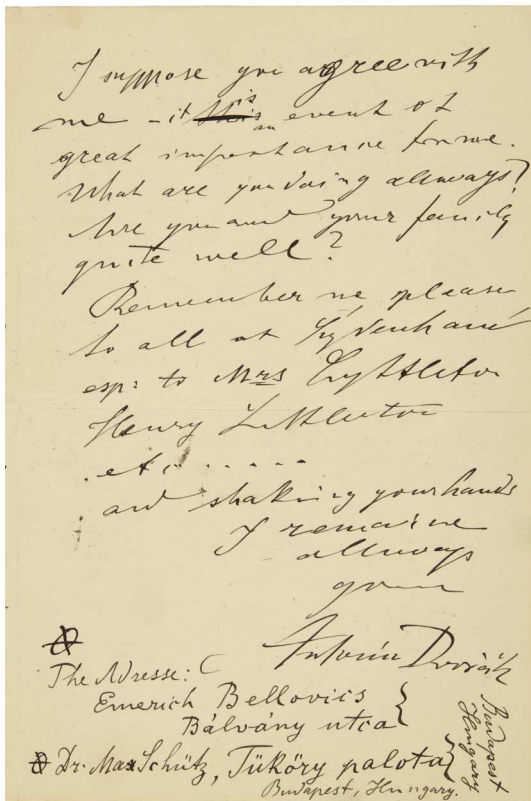 I suppose you agree with
me - it is an event of
great importance for me.
What are you doing allways?
Are you and your family
quite well?
Remember me, please
to all at Sydenham
esp: to Mrs Lyttleton
Henry Littleton
etc.......
and shaking your hands
I remaine
allways
your
Antonín Dvořák
The Adresse:
Emerich Bellovics
Bálvány utca
Budapest
Hungary
Dr. Max Schütz, Tüköry palota
Budapest, Hungary.